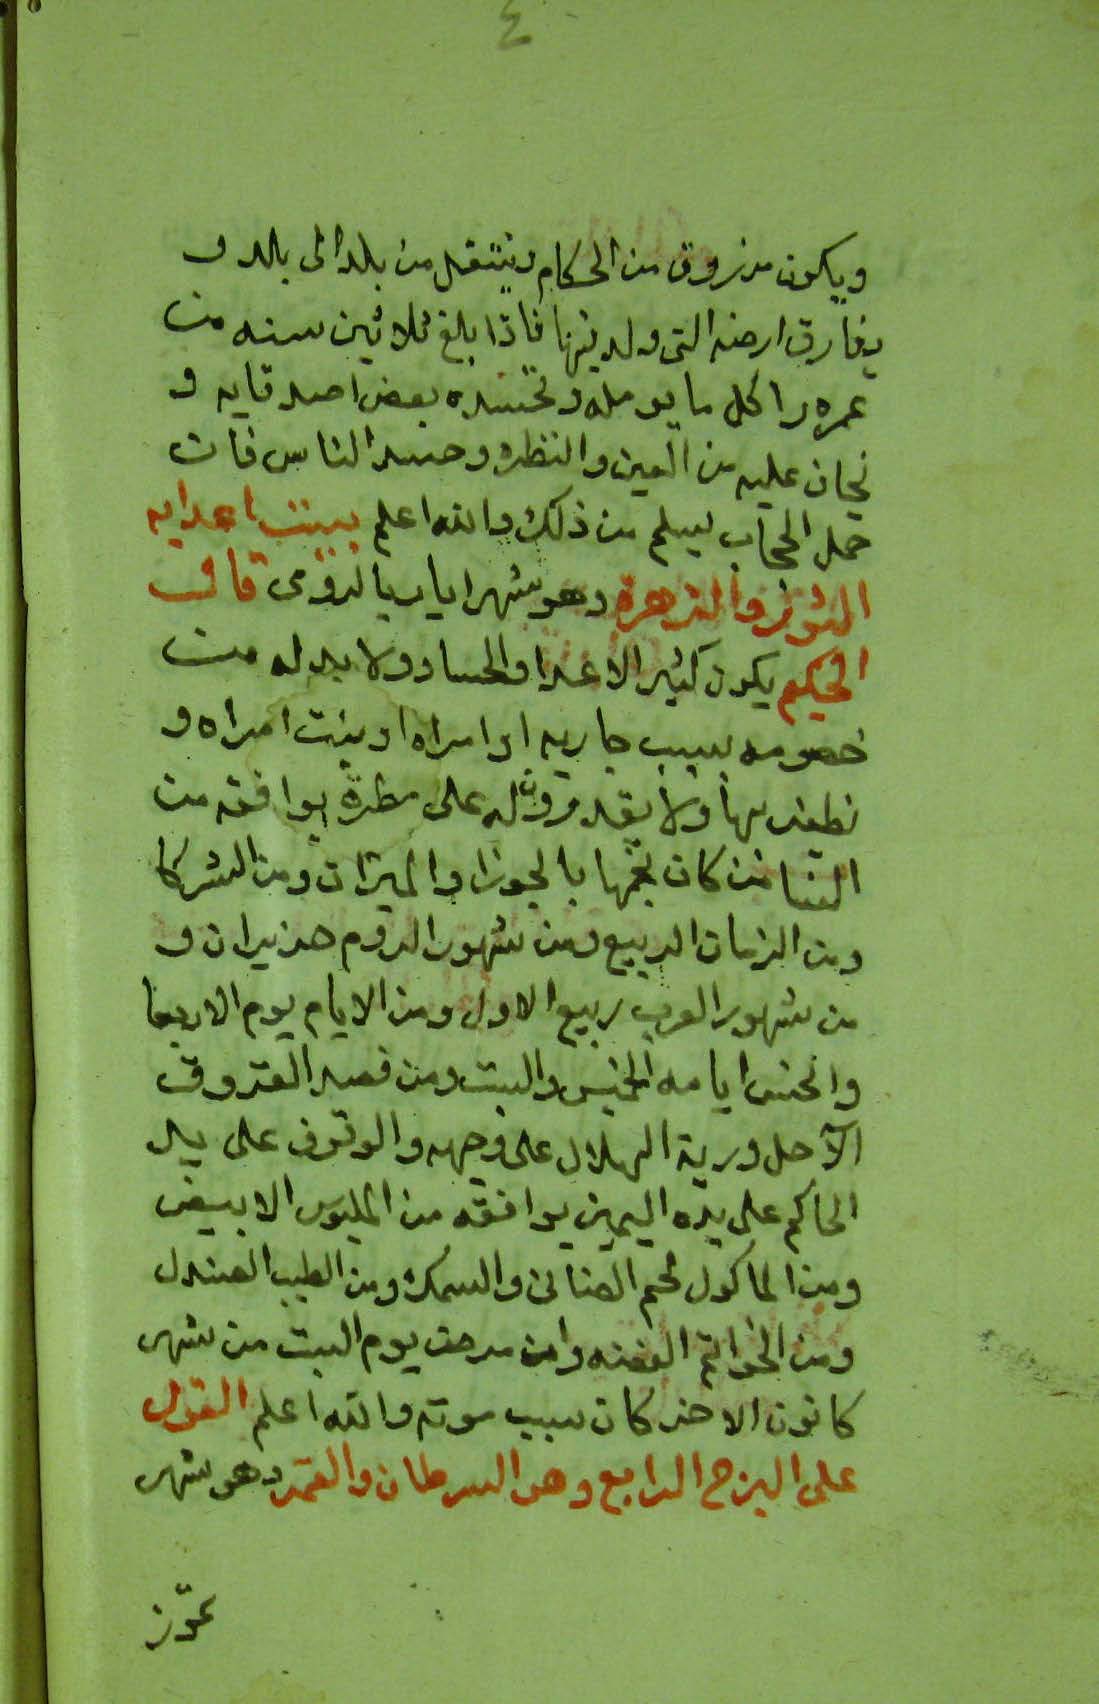 ٤
ويكون مرزوق من الحكام وينتقل من بلد الى بلد و
يفارق ارضه التى ولد فيها فاذا بلغ ثلاثين سنه من
عمره راا كل ما يومله وتحسده بعض اصدقايه و
يخاف عليه من العين والنظره وحسد الناس فان
حمل الحجاب يسلم من ذلك والله اعلم بيت اعدايه
الثور والزهرة وهو شهر ايار بالرومى قال
الحكيم يكون كثير الاعدا والحساد ولا بد له من
خصومه بسبب جاريه او امراه او بنت امراه و
يظفر بها ولا يقدرون له على مضرة يوافقه من
النسا من كان نجمها بالجوزا والميزان ومن الشركا
ومن الزمان الربيع ومن شهور الروم حزيران و
من شهور العرب ربيع الاول ومن الايام يوم الاربعا
وانحس ايامه الخميس والسبت ومن فصد العروق
الاكحل ورية الهلال على وجهه والوقوف على يد
الحاكم على يده اليمين يوافقه من الملبوس الابيض
ومن الماكول لحم الضانى والسمك ومن الطيب الصندل
ومن الخواتم الفضه وان مرض يوم السبت من شهر
كانون الاخر كان سبب موته والله اعلم القول
على البرج الرابع وهو السرطان والقمر وهو شهر
تموز